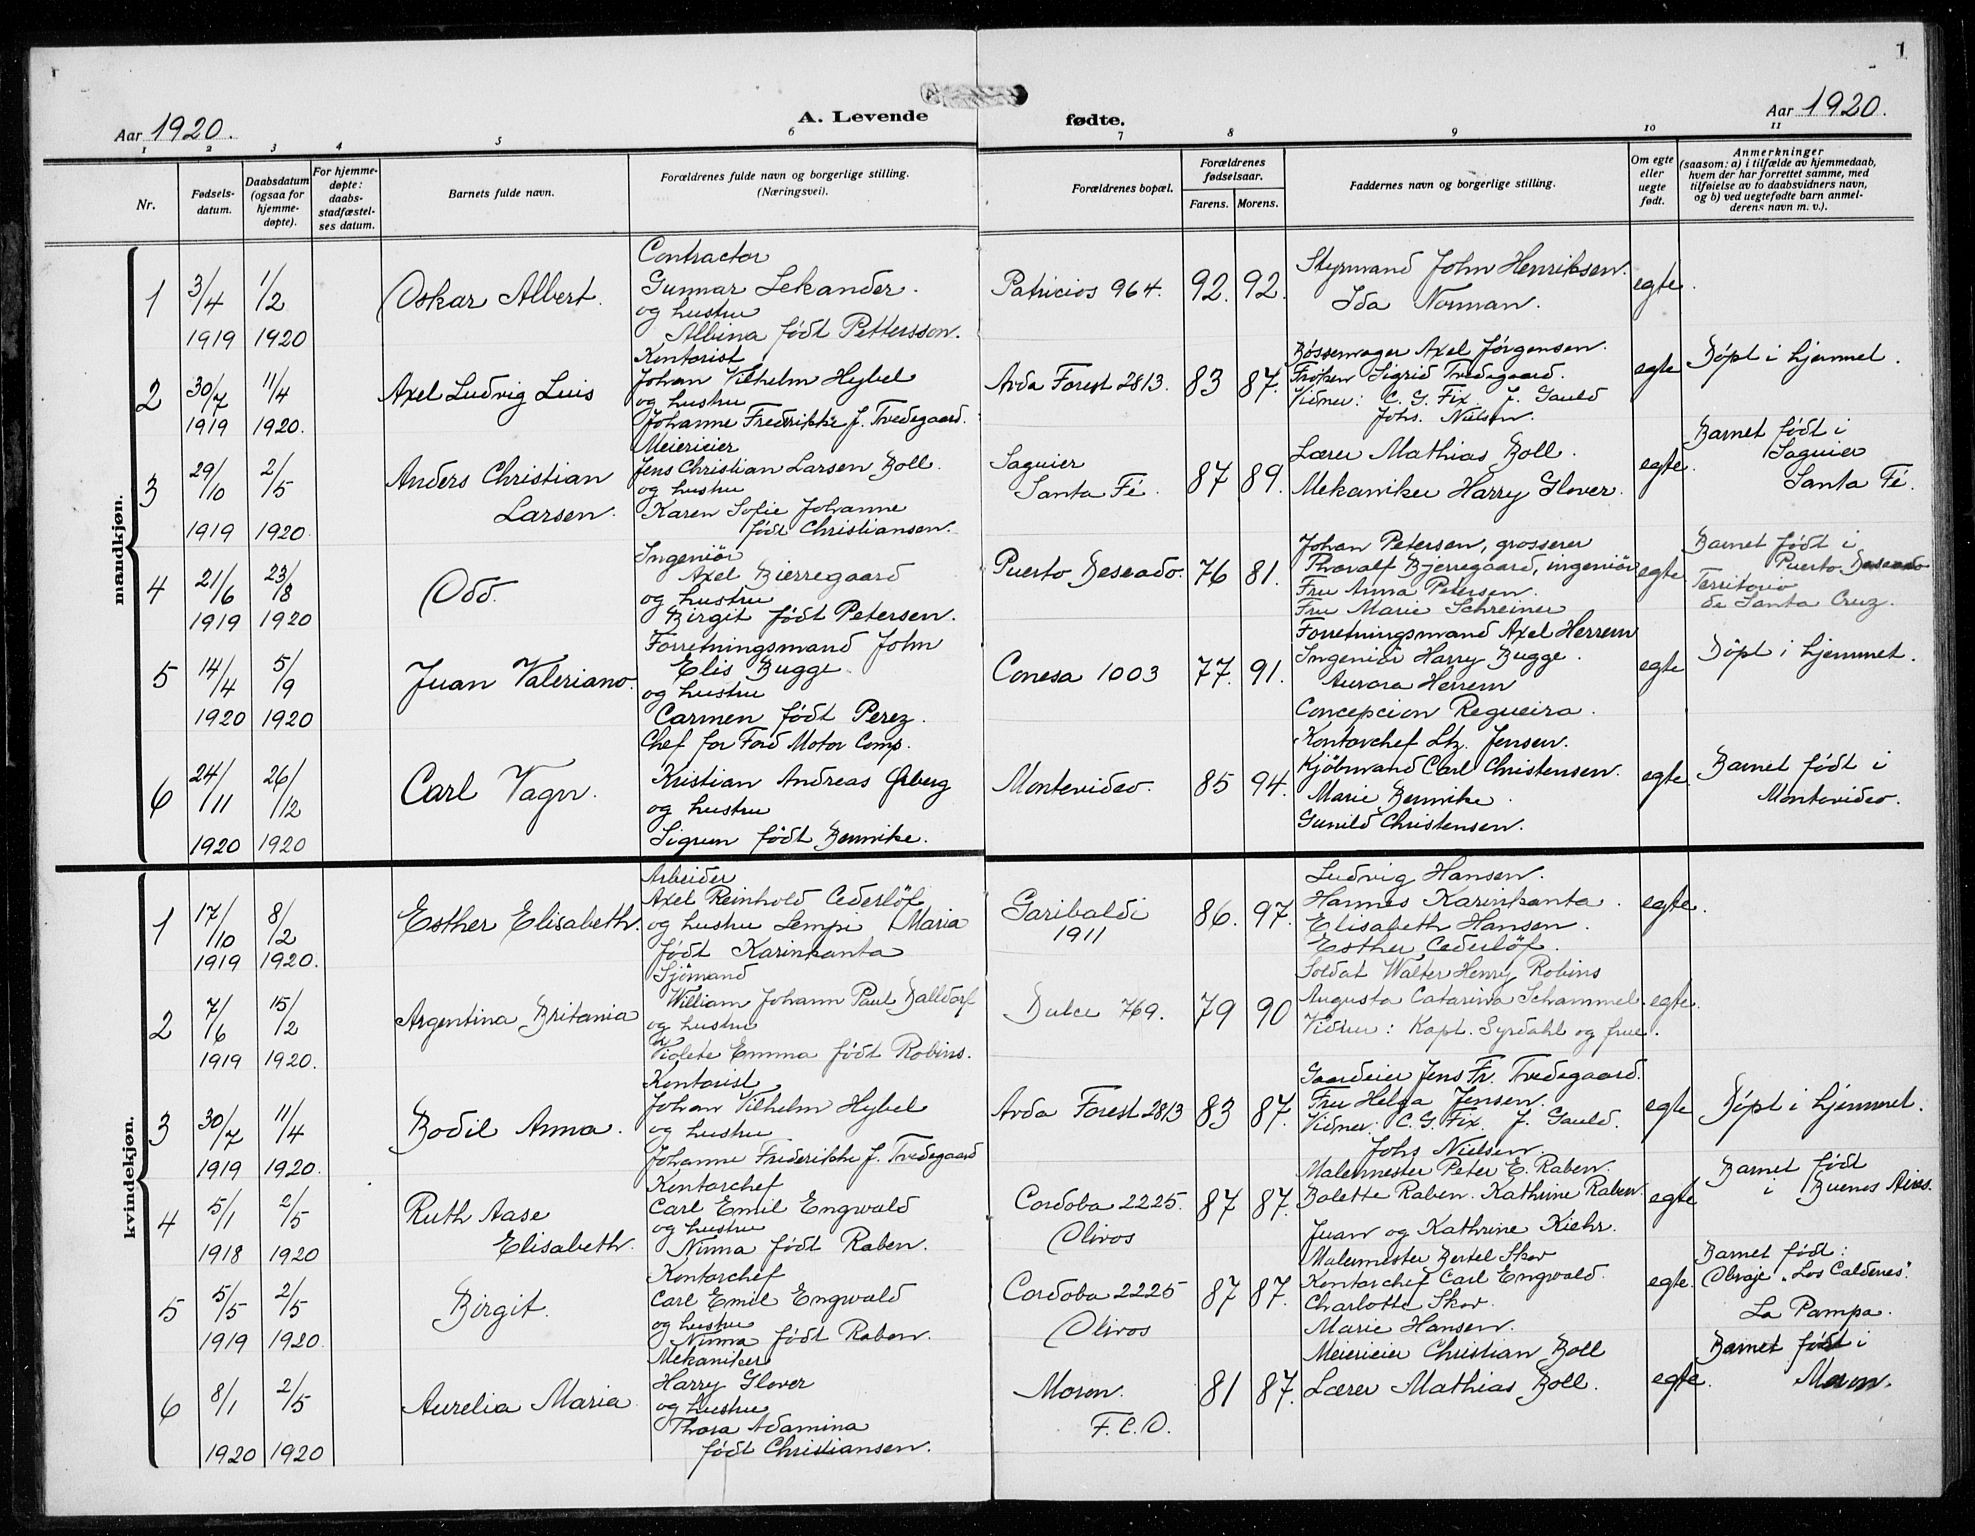 1
Aar 1920.
A. Levende fødte.
Aar 1920.
1 2 3 4 5 6 7 8 9 10 11
Nr.
Fødsels-
datum.
Daabsdatum
(ogsaa for
hjemme-
døpte).
For hjemme-
døpte:
daabs-
stadfæstel-
ses datum.
Barnets fulde navn.
Forældrenes fulde navn og borgerlige stilling.
(Næringsvei).
Forældrenes bopæl.
Forældrenes
fødselsaar.
Farens. Morens.
Faddernes navn og borgerlige stilling.
Om egte
eller
uegte
født.
Anmerkninger
(saasom: a) i tilfælde av hjemmedaab,
hvem der har forrettet samme, med
tilføielse av to daabsvidners navn,
og b) ved uegtefødte barn anmel-
derens navn m. v.).
mandkjøn.
1
3/4
1919
1/2
1920
Oskar Albert.
Contractor
Gunnar Lekander.
og hustru
Albina født Pettersson.
Patricios 964.
92. 92.
Styrmand John Henriksen.
Ida Norman.
egte.
2
30/7
1919
11/4
1920.
Axel Ludvig Luis
Kontorist
Johan Vilhelm Hybel
og hustru
Johanne Fredrikke J. Tvedegaard.
Avda Forest 2813.
83 87.
Bössemager Axel Jörgensen.
Fröken Sigrid Tvedegaard.
Vidner: C. G. Fix. J. Gauld
Johs. Nielsen.
egte
Döpt i hjemmet.
3
29/10
1919
2/5
1920.
Anders Christian
Larsen.
Meierieier
Jens Christian Larsen Boll.
og hustru
Karen Sofie Johanne
født Christiansen.
Saguier
Santa Fé.
87 89.
Lærer Mathias Boll.
Mekaniker Harry Glover.
egte.
Barnet født i
Saguier
Santa Fé.
4
21/6
1919
23/8
1920
Odd.
Ingeniör
Axel Bierregaard
og hustru
Birgit født Petersen.
Puerto Deseado.
76 81.
Johan Petersen, grosserer
Thorvalf Bjerregaard, ingeniör
Fru Anna Petersen.
Fru Marie Schreiner
egte
Barnet født i
Puerto Deseado
Territorio
de Santa Cruz.
5
14/4
1920
5/9
1920
Juan Valeriano.
Forretningsmand John
Elis Bugge
og hustru
Carmen født Perez.
Conesa 1003
77. 91.
Forretningsmand Axel Herrem
Ingeniör Harry Bugge.
Aurora Herrem
Concepcion Regueira.
egte
Döpt i hjemmet.
6
24/11
1920
26/12
1920
Carl Vagn.
Chef for Ford Motor Comp.
Kristian Andreas Örberg
og hustru
Sigrun født Bennike.
Montevideo.
85 94.
Kontorchef Ltz. Jensen.
Kjöbmand Carl Christensen.
Marie Bennike.
Gunild Christensen.
egte.
Barnet født i
Montevideo.
kvindekjøn.
1
17/10
1919
8/2
1920.
Esther Elisabeth.
Arbeider
Axel Reinhold Cederlöf
og hustru Lempi Maria
født Karinkanta
Garibaldi
1911
86. 97.
Ludvig Hansen.
Hannes Karinkanta.
Elisabeth Hansen.
Esther Cederlöf.
egte.
2
7/6
1919
15/2
1920.
Argentina Britania
Sjömand
William Johann Paul Balldorf
og hustru
Violete Emma født Robins.
Dulce 769.
79 90
Soldat Walter Henry Robins
Augusta Catarina Schammel
Vidner: Kapt. Syrdahl og frue.
egte.
3
30/7
1919
11/4
1920.
Bodil Anna.
Kontorist
Johan Vilhelm Hybel
og hustru
Johanne Frederikke J. Tvedegaard
Avda Forest 2813
83 87.
Gaardeier Jens Fr. Tvedegaard.
Fru Helga Jensen.
Vidner: C. G. Fix. J. Gauld.
Johs Nielsen.
egte
Döpt i hjemmet.
4
5/1
1918
2/5
1920
Ruth Aase
Elisabeth.
Kontorchef
Carl Emil Engwald
og hustru
Ninna født Raben.
Cordoba 2225.
Olivos
87 87.
Malermester Peter E. Raben.
Bolette Raben. Kathrine Raben.
Juan og Kathrine Kiehr.
egte
Barnet født
i Buenos Aires.
5
5/5
1919
2/5
1920.
Birgit.
Kontorchef
Carl Emil Engwald
og hustru
Ninna født Raben.
Cordoba 2225
Olivos
87 87.
Malermester Bertel Skov
Kontorchef Carl Engwald.
Charlotte Skov.
Marie Hansen.
egte.
Barnet født:
Obraje "Los Caldenes".
La Pampa.
6
8/1
1920
2/5
1920
Aurelia Maria.
Mekaniker
Harry Glover
og hustru
Thora Adamina
født Christiansen.
Moron.
F.C.O.
81 87.
Meierieier Christian Boll
Lærer Mathias Boll.
egte.
Barnet født i
Moron.